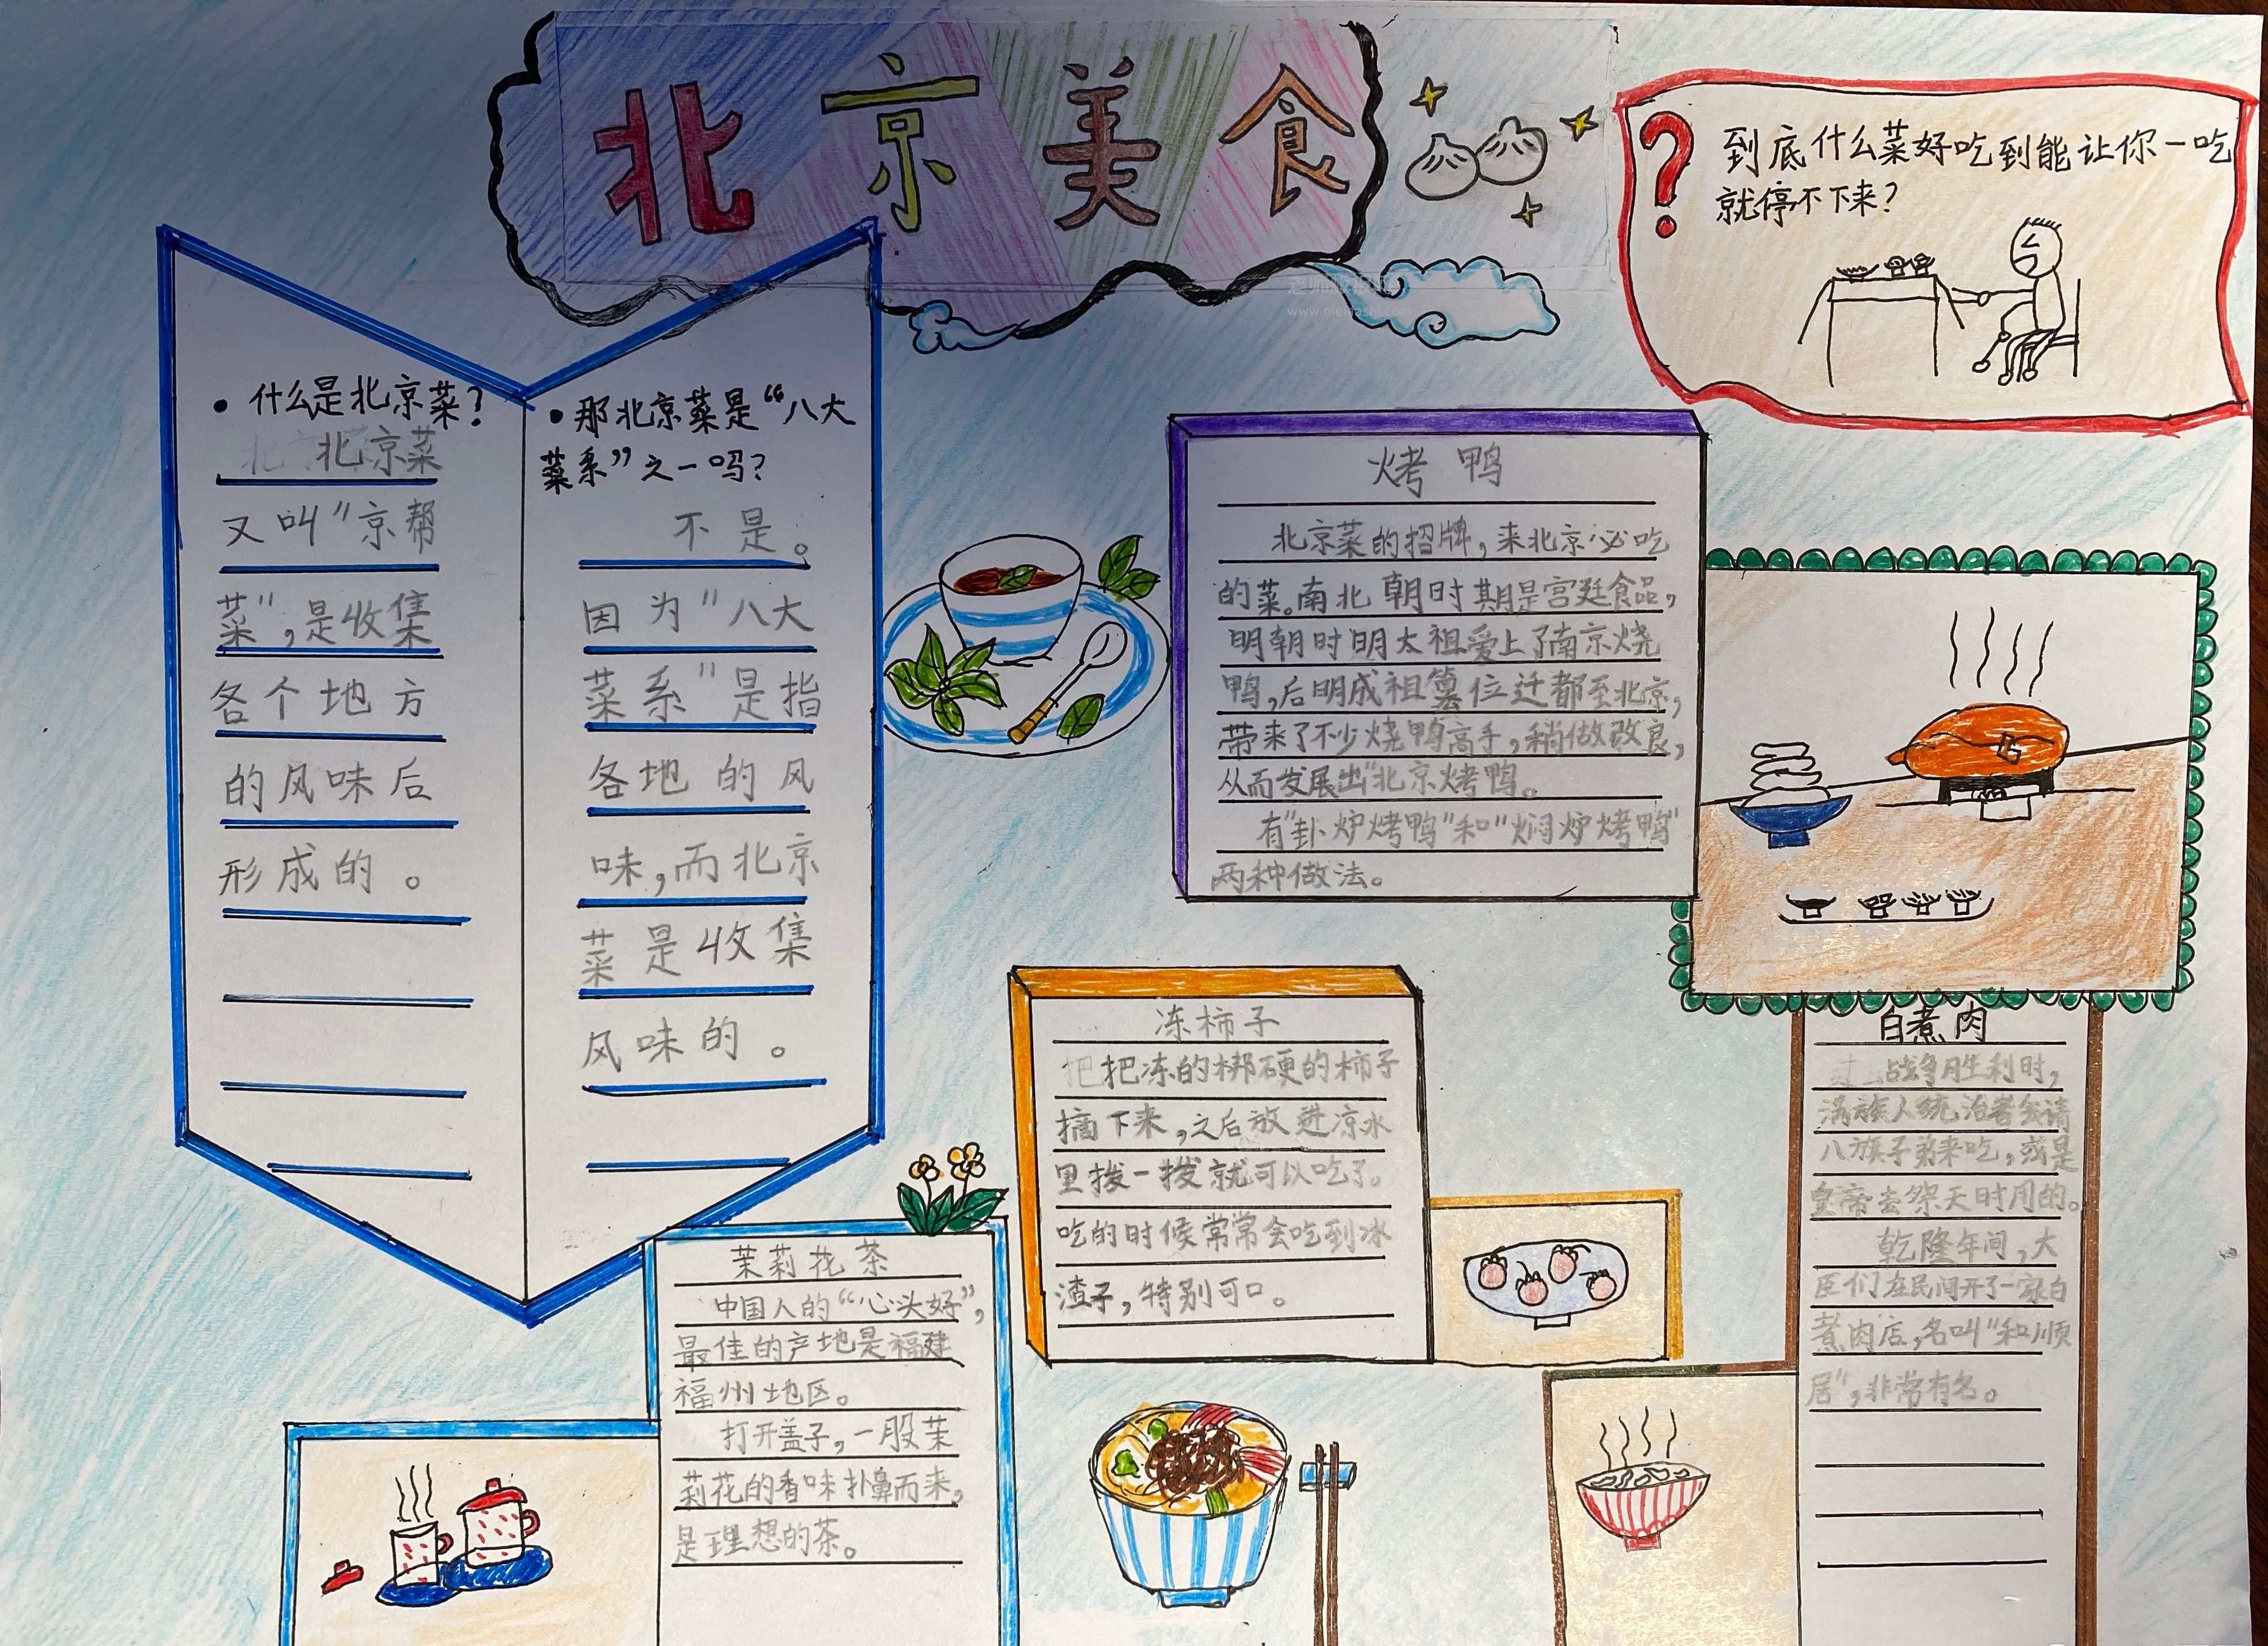 北京美食
到底什么菜好吃到能让你一吃
就停不下来?
•什么是北京菜?
北京菜
又叫"京帮
菜",是收集
各个地方
的风味后
形成的。
•那北京菜是“八大
菜系”之一吗?
不是。
因为"八大
菜系"是指
各地的风
味,而北京
菜是收集
风味的。
烤鸭
北京菜的招牌,来北京必吃
的菜。南北朝时期是宫廷食品,
明朝时明太祖爱上了南京烧
鸭,后明成祖篡位迁都至北京,
带来了不少烧鸭高手,稍做改良,
从而发展出"北京烤鸭。
有"卦炉烤鸭"和"焖炉烤鸭"
两种做法。
冻柿子
把冻的梆硬的柿子
摘下来,之后放进凉水
里拨一拨就可以吃了。
吃的时候常常会吃到冰
渣子,特别可口。
白煮肉
战争胜利时,
满族人统治者会请
八旗子弟来吃,或是
皇帝去祭天时用的。
乾隆年间,大
臣们在民间开了一家白
煮肉店,名叫"和顺
居",非常有名。
茉莉花茶
中国人的“心头好”,
最佳的产地是福建
福州地区。
打开盖子,一股茉
莉花的香味扑鼻而来,
是理想的茶。